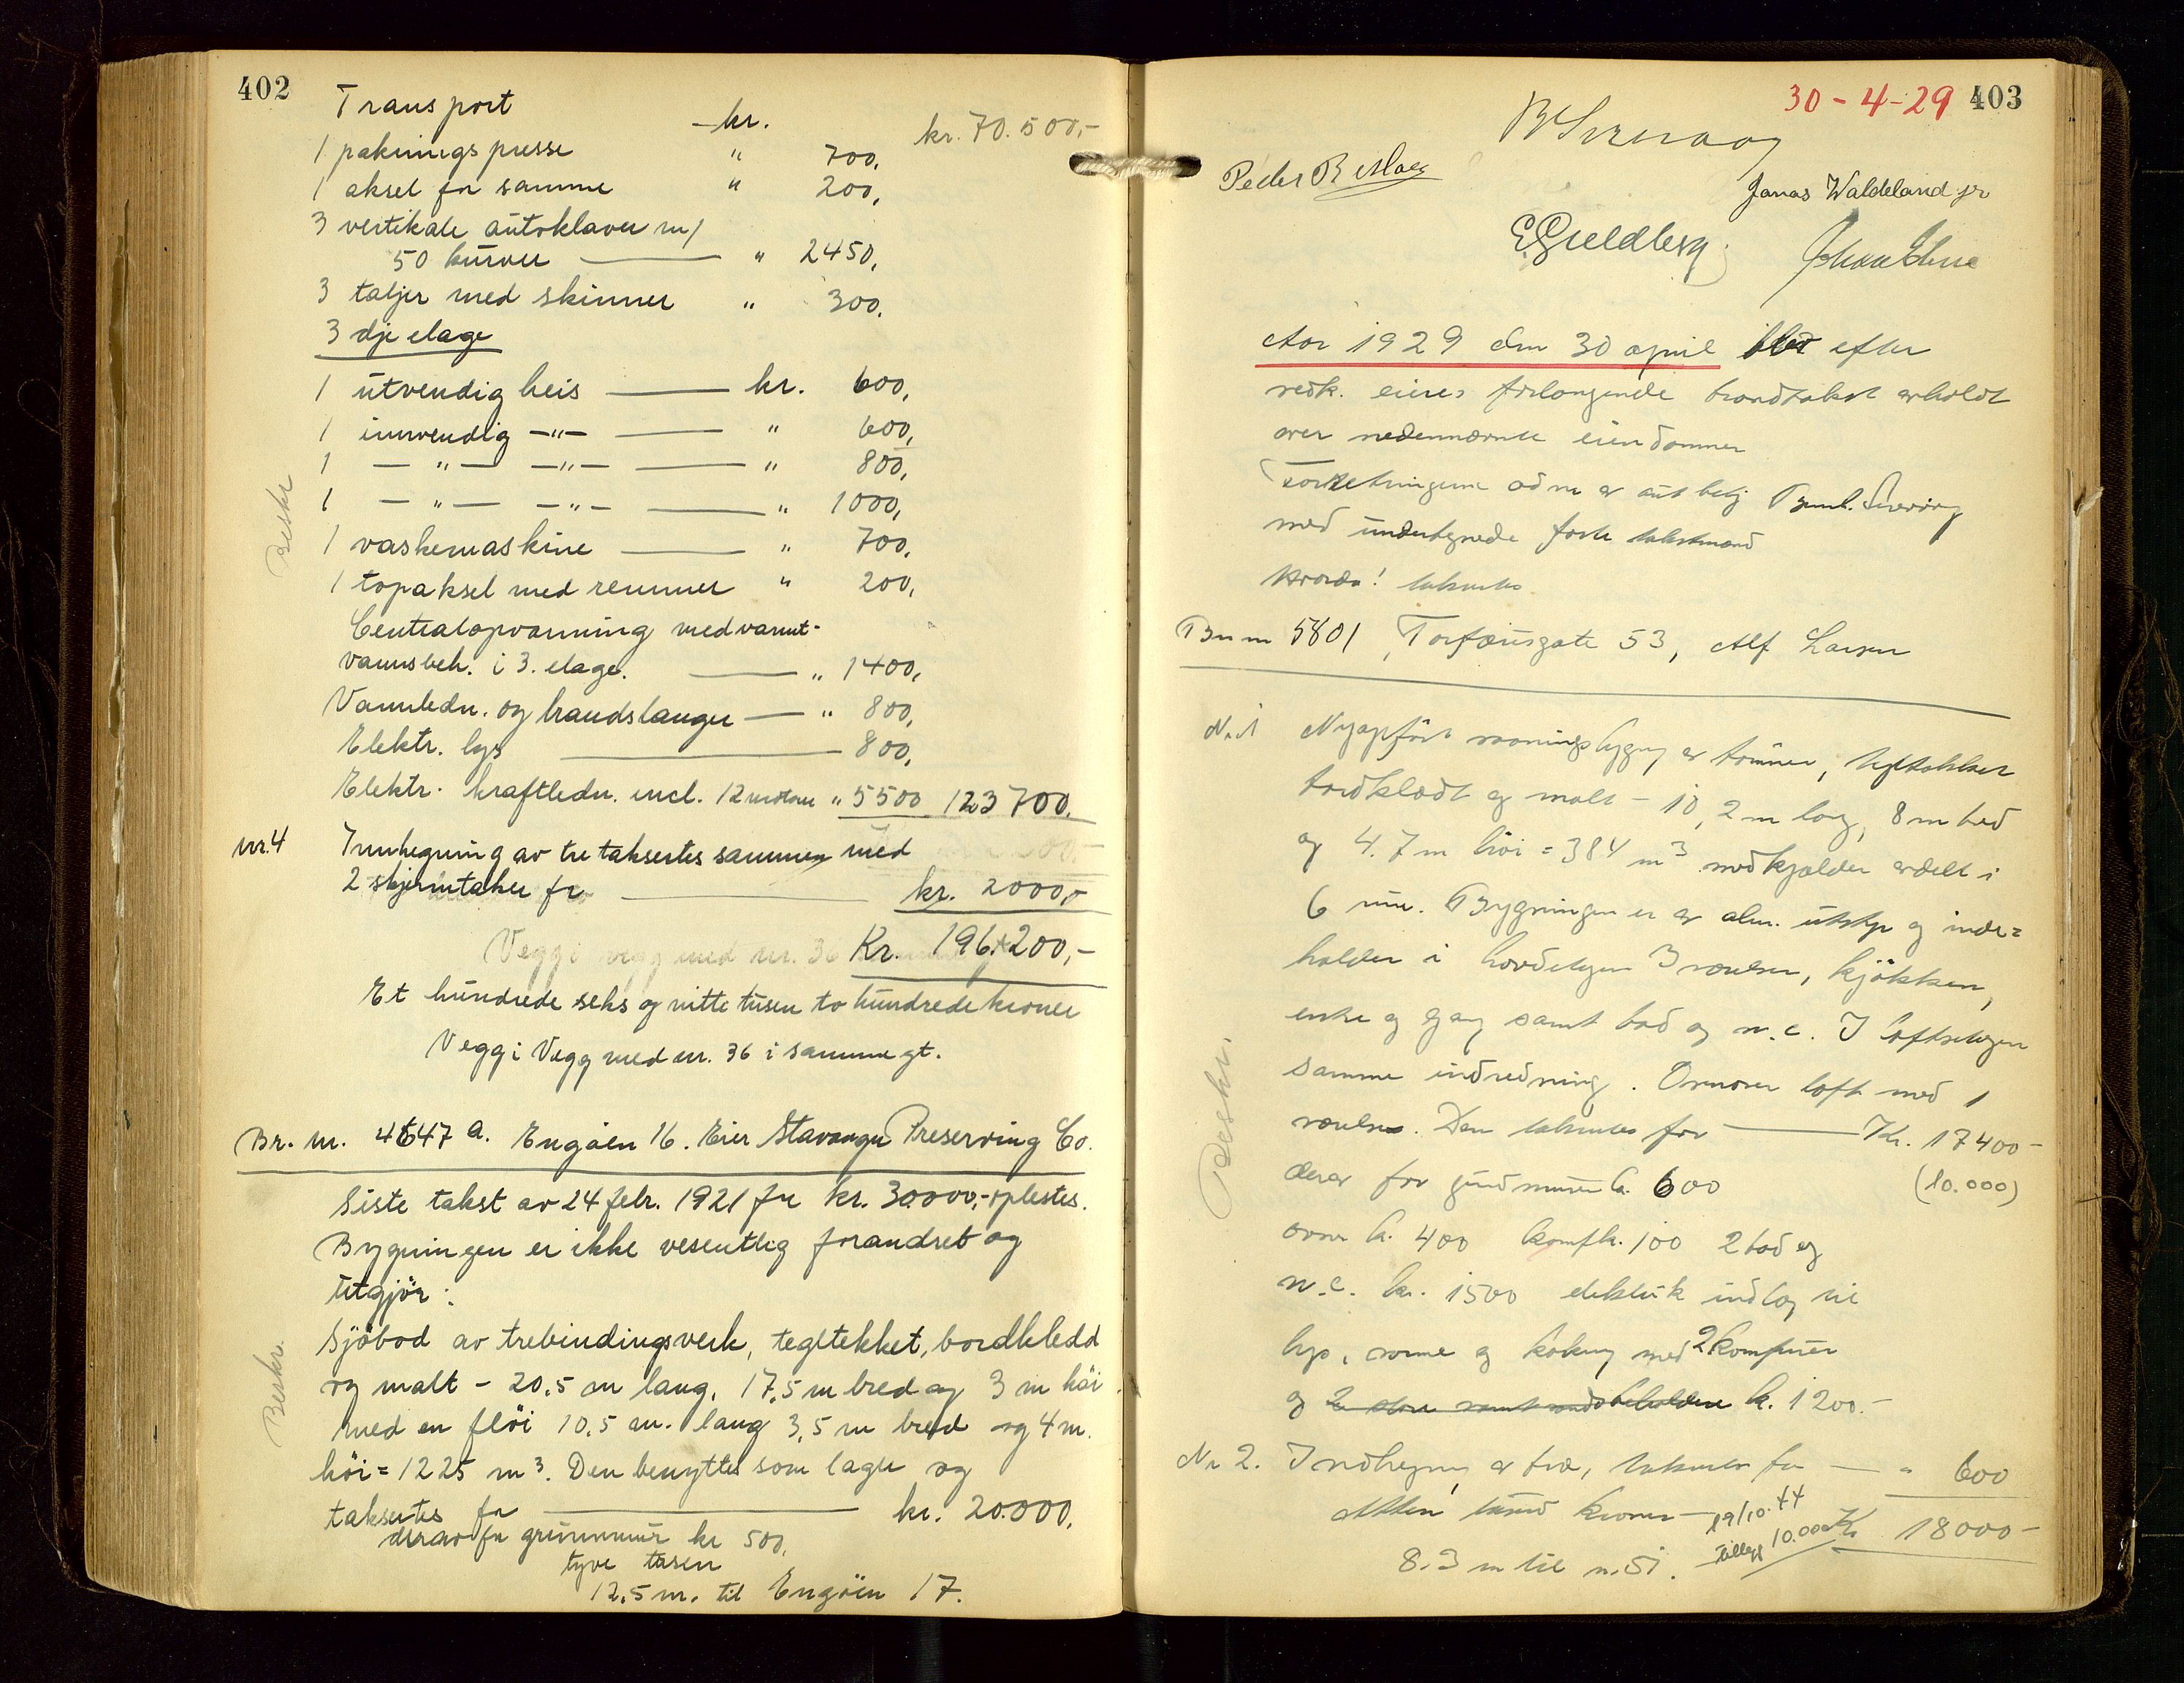 402
Transport kr. kr. 70.500,-
1 pakningspresse " 700,
1 aksel for samme " 200,
3 vertikale autoklaver m/
50 kurver " 2450,
3 taljer med skinner " 300,
3dje etage
1 utvendig heis kr. 600,
1 innvendig -"- " 600,
1 -"- -"- " 800,
1 -"- -"- " 1000,
1 vaskemaskine " 700,
1 topaksel med remmer " 200,
Centralopvarming med varmt-
vannsbeh. i 3. etage. " 1400,
Vannledn. og brandslanger " 800,
Elektr. lys 800,
Elektr. kraftledn. incl. 12 motorer " 5500 123700,
Beskr
nr. 4 Innhegning av tre taksertes sammen med
2 skjermtaker for kr. 2000,-
Vegg i vegg med nr. 36 Kr. 196.200,-
Et hundrede seks og nitti tusen to hundrede kroner
Vegg i Vegg med nr. 36 i samme gt.
Br. nr. 4647 a. Engøen 16. Eier Stavanger Preserving Co.
Siste takst av 24 febr. 1921 for kr. 30000,- oplestes.
Bygningen er ikke vesentlig forandret og
utgjør:
Sjøbod av trebindingsverk, tegltekket, bordkledd
og malt - 20,5 m lang, 17,5 m bred og 3 m høi
med en fløi 10,5 m. lang 3,5 m bred og 4 m.
høi = 1225 m³. Den benyttes som lager og
taksertes for kr. 20.000,
derav for grunnmur kr 500,
tyve tusen
12,5 m. til Engøen 17.
Beskr.
30-4-29 403
Jonas Waldeland jr
E. Gueldberg
Aar 1929 den 30 april blev efter
vedk. eieres forlangende brandtakst avholdt
over nedennævnte eiendommer
Forretningene adm av
med undertegnede faste takstmænd
Hvorda! takseres
Br nr 5801, Torfæusgate 53, Alf Larsen
Nr. 1 Nyopført vaaningsbygn av tømmer, tegltækket
bordklædt og malt - 10,2 m lang, 8 m bred
og 4.7 m høi = 384 m³ med kjælder avdelt i
6 rum. Bygningen er av alm. utstyr og inde=
holder i hovedetagen 3 værelser, kjøkken,
entre og gang samt bad og w.c. I loftsetagen
samme indredning. Ovenover loft med 1
værelse. Den takseres for Kr. 17400-
derav for grundmuren k. 600 (10.000)
ovner k. 400 komf k. 100 2 bad og
w.c. kr. 1500 elektrik indlæg til
lys, varme og kokning med 2 komfurer
og k. 1200.-
Beskr.
Nr 2. Indhegning av træ, takseres for " 600
Atten tusind kroner Kr 18000-
19/10.44
tillegg 10.000
8.3 m til n. 51.